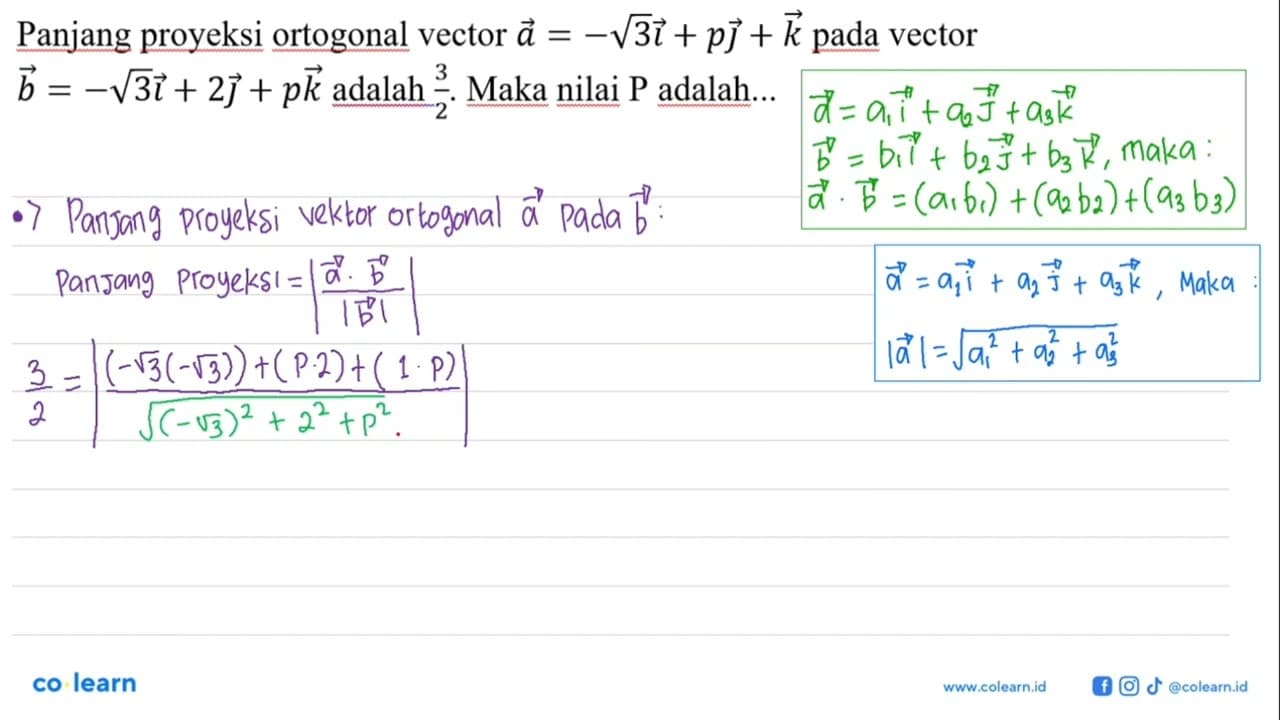 Panjang proyeksi ortogonal vector a⃗ = −√3i⃗ + pj⃗ + k⃗ pada vector
b⃗ = −√3i⃗ + 2j⃗ + pk⃗ adalah 3/2. Maka nilai P adalah...
a⃗ = a₁i⃗ + a₂j⃗ + a₃k⃗
b⃗ = b₁i⃗ + b₂j⃗ + b₃k⃗, maka :
a⃗ · b⃗ = (a₁b₁) + (a₂b₂) + (a₃b₃)
•> Panjang proyeksi vektor ortogonal a⃗ pada b⃗ :
Panjang Proyeksi = |a⃗ · b⃗ / |b⃗||
a⃗ = a₁i⃗ + a₂j⃗ + a₃k⃗, Maka :
|a⃗| = √(a₁² + a₂² + a₃²)
3/2 = |(−√3(−√3)) + (P·2) + (1·P) / √((−√3)² + 2² + P²)|
co learn
www.colearn.id
@colearn.id